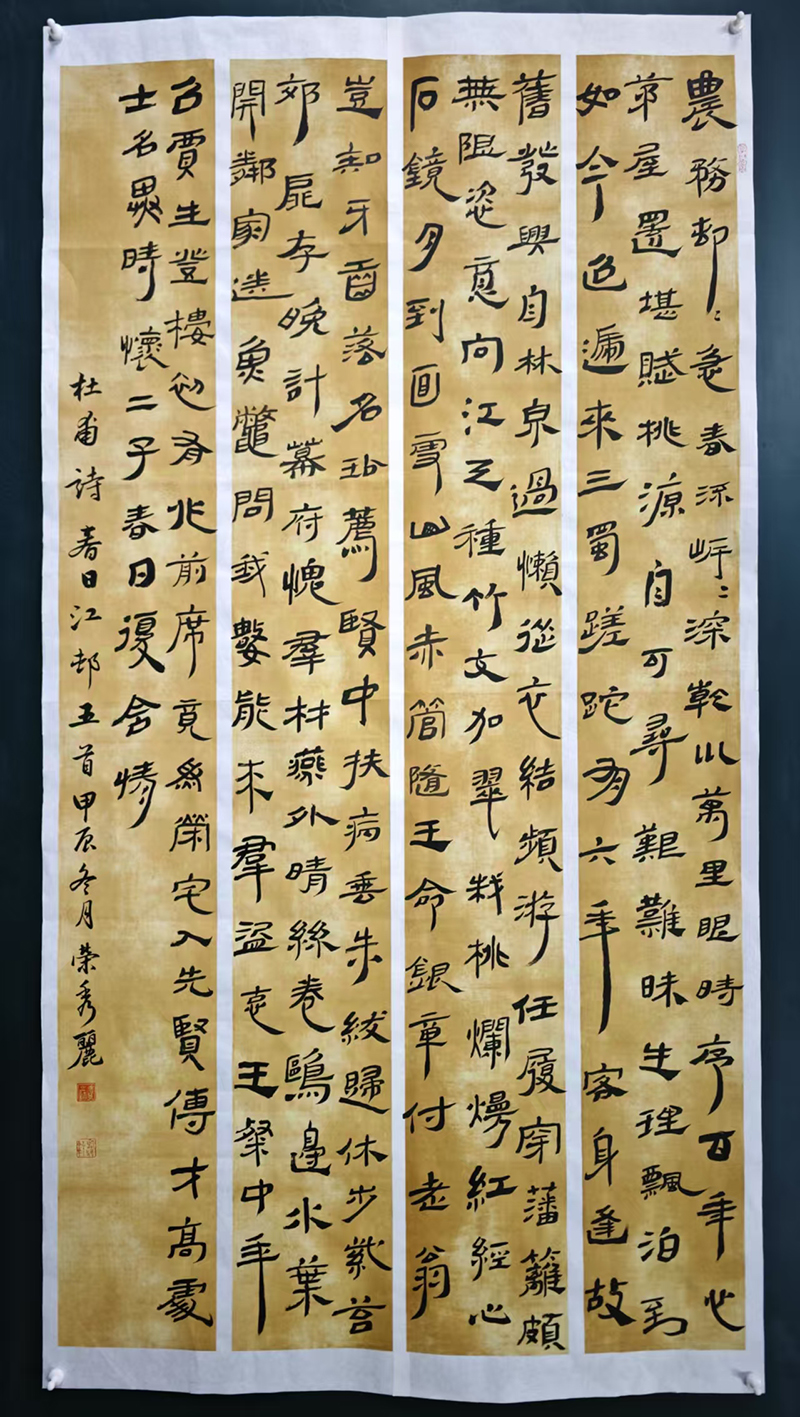 農務邨〻急春流岸〻深乾巛萬里眼時序百年心
茅屋還堪賦桃源自可尋艱難昧生理飄泊到
如今迢遞來三蜀蹉跎有六年客身逢故
舊發興自林泉過懶從衣結頻游任履穿藩籬頗
無阻恣意向江天種竹交加翠栽桃爛熳紅經心
石鏡月到面雪山風赤管隨王命銀章付老翁
豈知牙齒落名玷薦賢中扶病垂朱紱歸休步紫苔
郊扉存晚計幕府愧羣材燕外晴絲卷鷗邊水葉
開鄰家送魚鼈問我數能來羣盜哀王粲中年
召賈生登樓初有作前席竟為榮宅入先賢傳才高處
士名異時懷二子春日復含情
杜甫詩春日江邨五首甲辰冬月榮秀麗